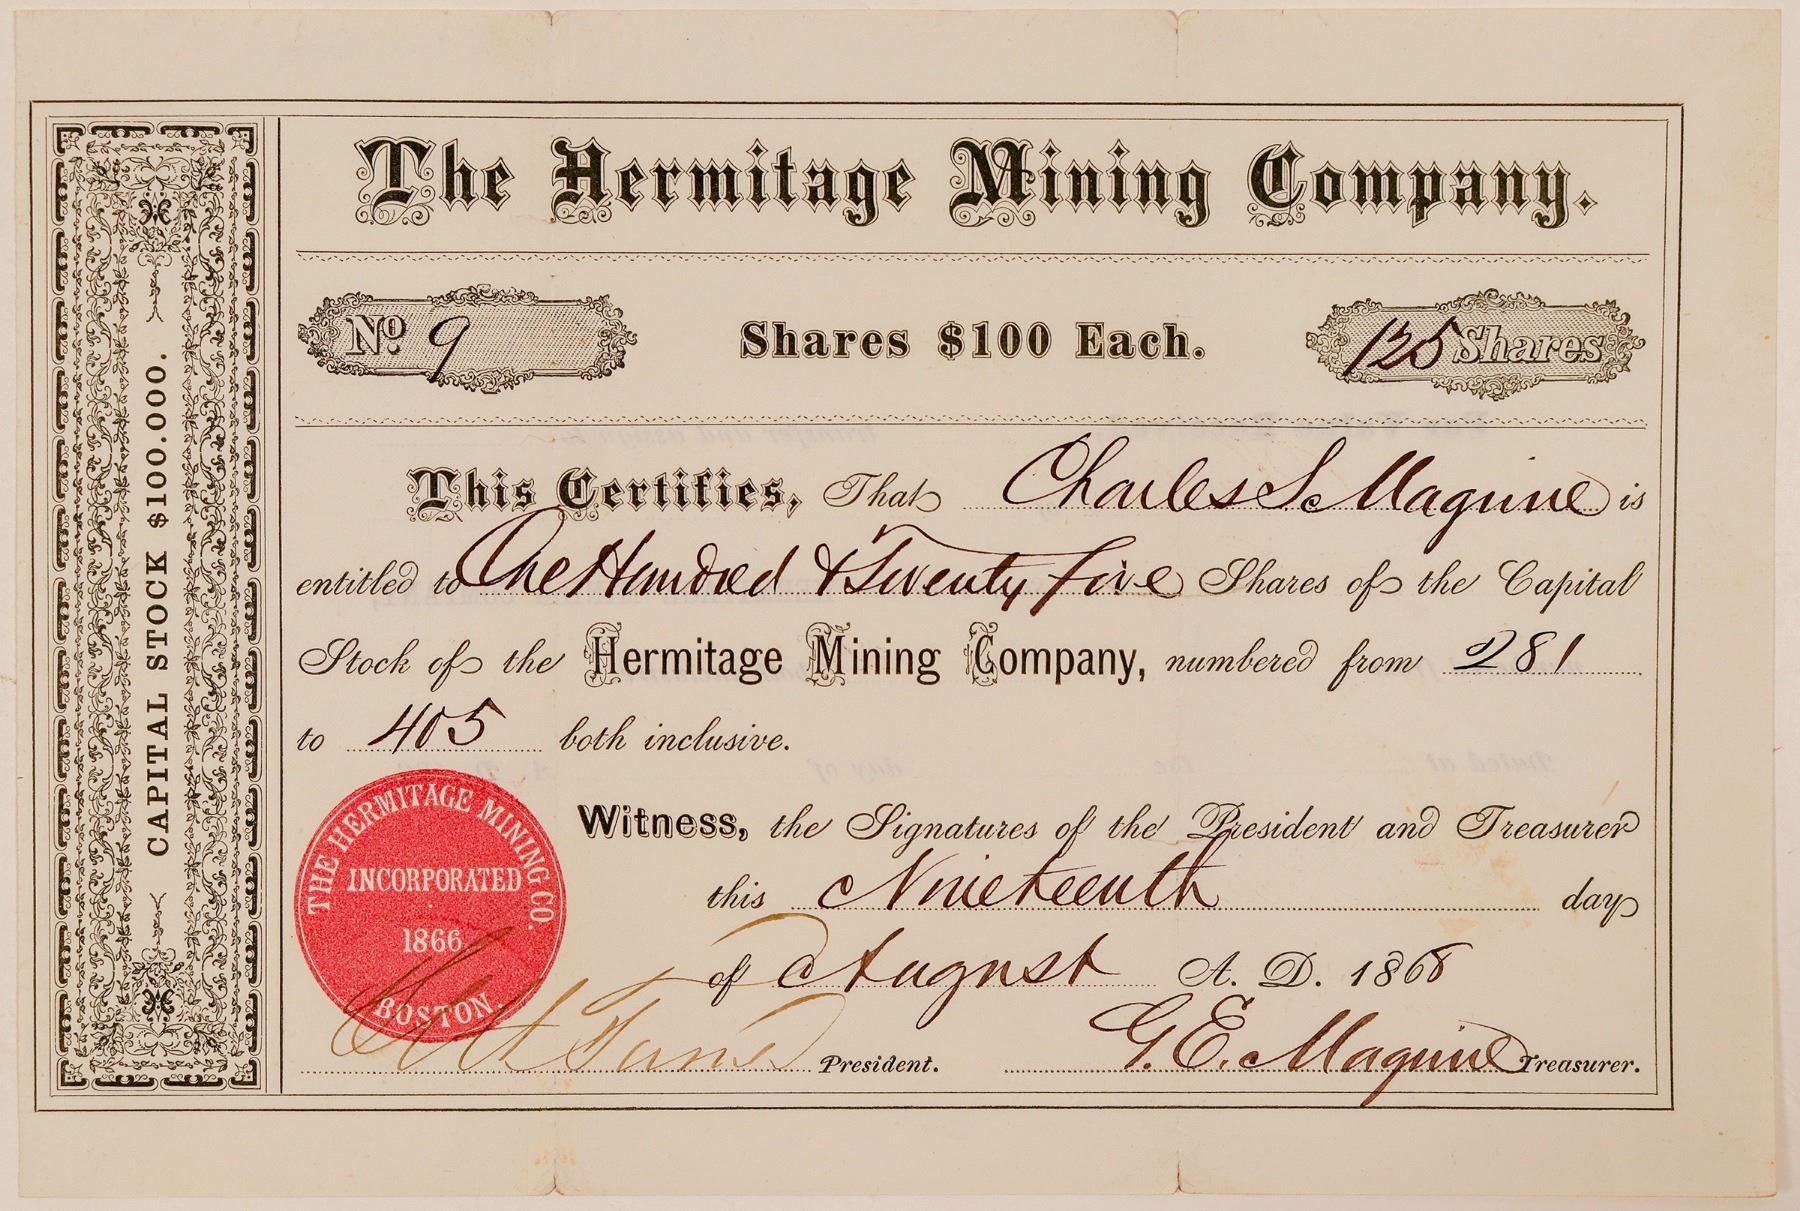 The Hermitage Mining Company.
No. 9
Shares $100 Each.
125 Shares
CAPITAL STOCK $100.000.
This Certifies, That Charles S. Maguire is
entitled to One Hundred & Twenty five Shares of the Capital
Stock of the Hermitage Mining Company, numbered from 281
to 405 both inclusive.
Witness, the Signatures of the President and Treasurer
this Nineteenth day
of August A. D. 1868
THE HERMITAGE MINING CO.
INCORPORATED
1866
BOSTON.
President.
G. E. Maguire Treasurer.